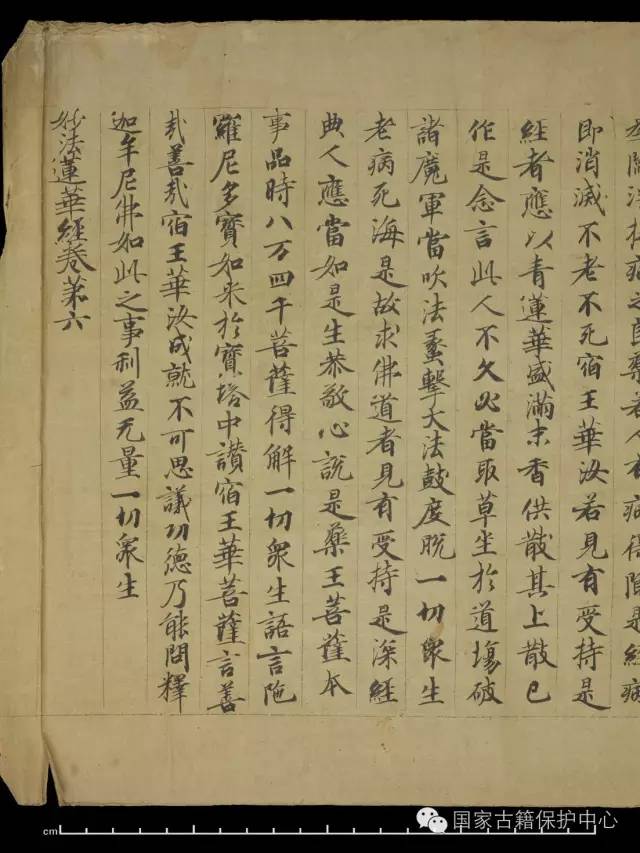 為閻浮提病之良藥若人有病得聞是經病
即消滅不老不死宿王華汝若見有受持是
經者應以青蓮華盛滿末香供散其上散已
作是念言此人不久必當取草坐於道場破
諸魔軍當吹法蠡擊大法鼓度脫一切衆生
老病死海是故求佛道者見有受持是深經
典人應當如是生恭敬心說是藥王菩薩本
事品時八万四千菩薩得解一切衆生語言陁
羅尼多寶如来於寶塔中讚宿王華菩薩言善
哉善哉宿王華汝成就不可思議功德乃能問釋
迦牟尼佛如此之事利益无量一切衆生
妙法蓮華經卷第六
cm
国家古籍保护中心